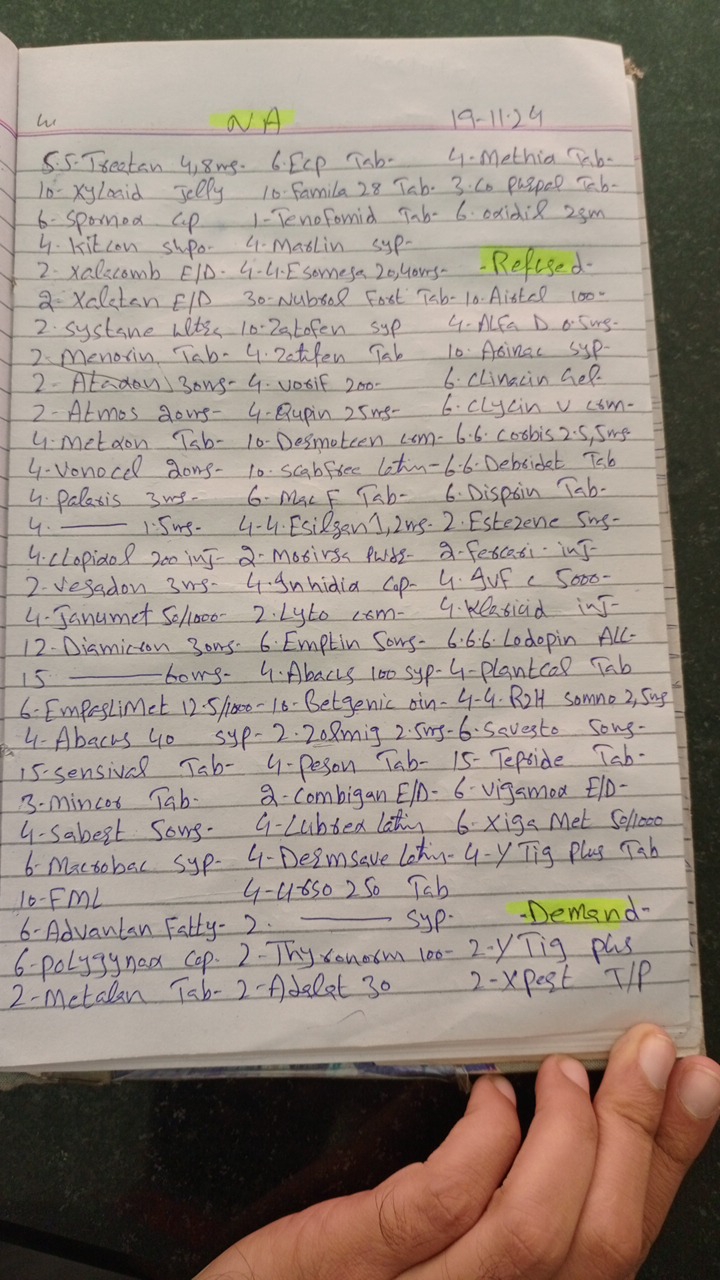 N.A 19-11-24
5.5-Treatan 4,8mg- 6-Ecp Tab- 4-Methia Tab-
10-Xyloaid Jelly 10-Famila 28 Tab- 3-Co Tab-
6-Spornox Cap 1-Tenofomid Tab- 6-oxidil 2gm
4-Kitcon shpo- 4-Maslin syp-
2-Xalacomb E/D- 4-4-Esomega 20,40mg- -Refused-
2-Xalatan E/D 30-Nubrol Fort Tab- 10-Airtal 100-
2-Systane ultra 10-Zatofen syp 4-Alfa D 0.5mg-
2-Menorin Tab- 4-Zatifen Tab 10-Acinac syp-
2-Atadon 30mg- 4-Vorif 200- 6-Clinacin Gel-
2-Atmos 20mg- 4-Qupin 25mg- 6-Clycin V crm-
4-Metdon Tab- 10-Desmoteen crm- 6.6-Corbis 2.5,5mg
4-Vonocel 20mg- 10-Scabfree lotin- 6.6-Debridat Tab
4-Palaris 3mg- 6-Mac F Tab- 6-Disprin Tab-
4- —— 1.5mg- 4-4-Esilgan 1,2mg- 2-Estezene 5mg-
4-Clopixol 200 inj- 2-Mosirsa Pwdr- 2-Fercari-inj-
2-Vegadon 3mg- 4-Inhidia Cap- 4-IVF C 5000-
4-Janumet 50/1000- 2-Lyto crm- 4-Klaricid inj-
12-Diamicron 30mg- 6-Emptin 5omg- 6.6.6-Lodopin ALL-
15 —— 60mg- 4-Abacus 100 syp- 4-Plantcal Tab
6-EmpagliMet 12.5/1000- 10-Betgenic oin- 4-4-R2H somno 2,5mg
4-Abacus 40 syp- 2-Zolmig 2.5mg- 6-Savesto 50mg-
15-Sensival Tab- 4-Peson Tab- 15-Tepride Tab-
3-Mincor Tab- 2-Combigan E/D- 6-Vigamox E/D-
4-Sabest 50mg- 4-Lubrex lotin 6-Xiga Met 50/1000
6-Macrobac syp- 4-Dermsave lotin- 4-Y Tig Plus Tab
10-FML 4-Urso 250 Tab
6-Advantan Fatty- 2- —— syp- -Demand-
6-Polygynax Cap- 2-Thyronorm 100- 2-Y Tig plus
2-Metalan Tab- 2-Adalat 30 2-Xpest T/P